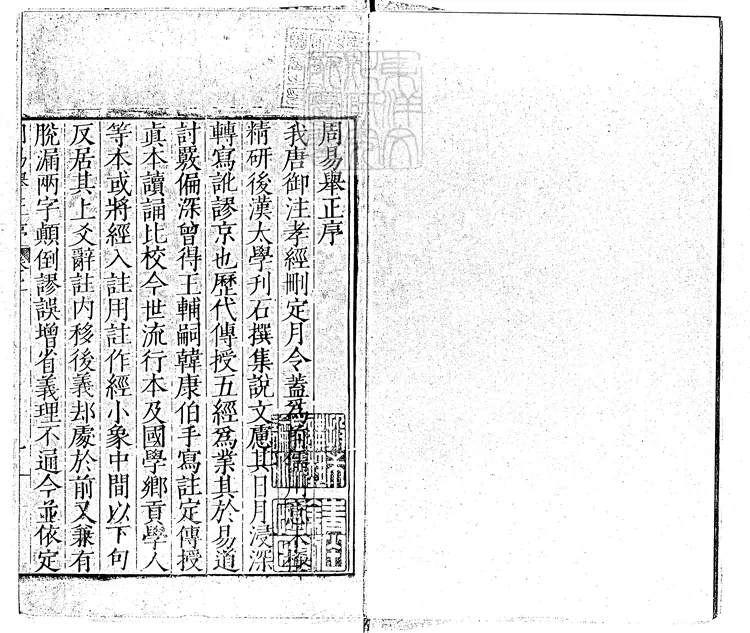 周易舉正序
我唐御注孝經刪定月令蓋為前儒用意未極
精研後漢太學刊石撰集說文慮其日月浸深
轉寫訛謬京也歷代傳授五經爲業其於易道
討覈偏深曾得王輔嗣韓康伯手寫註定傳授
眞本讀誦比校今世流行本及國學鄉貢學人
等本或將經入註用註作經小象中間以下句
反居其上爻辭註内移後義却處於前又兼有
脫漏兩字顛倒謬誤增省義理不通今並依定
周易舉正序